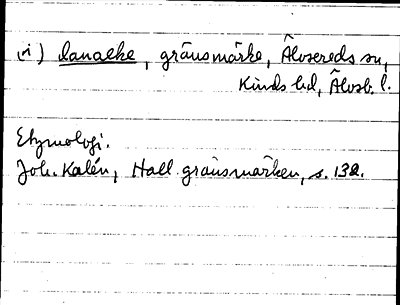 vi) lanaeke, gränsmärke, Älvsereds sn,
Kinds hd, Älvsb. l.
Etymologi.
Joh. Kalén, Hall. gränsmärken, s. 132.